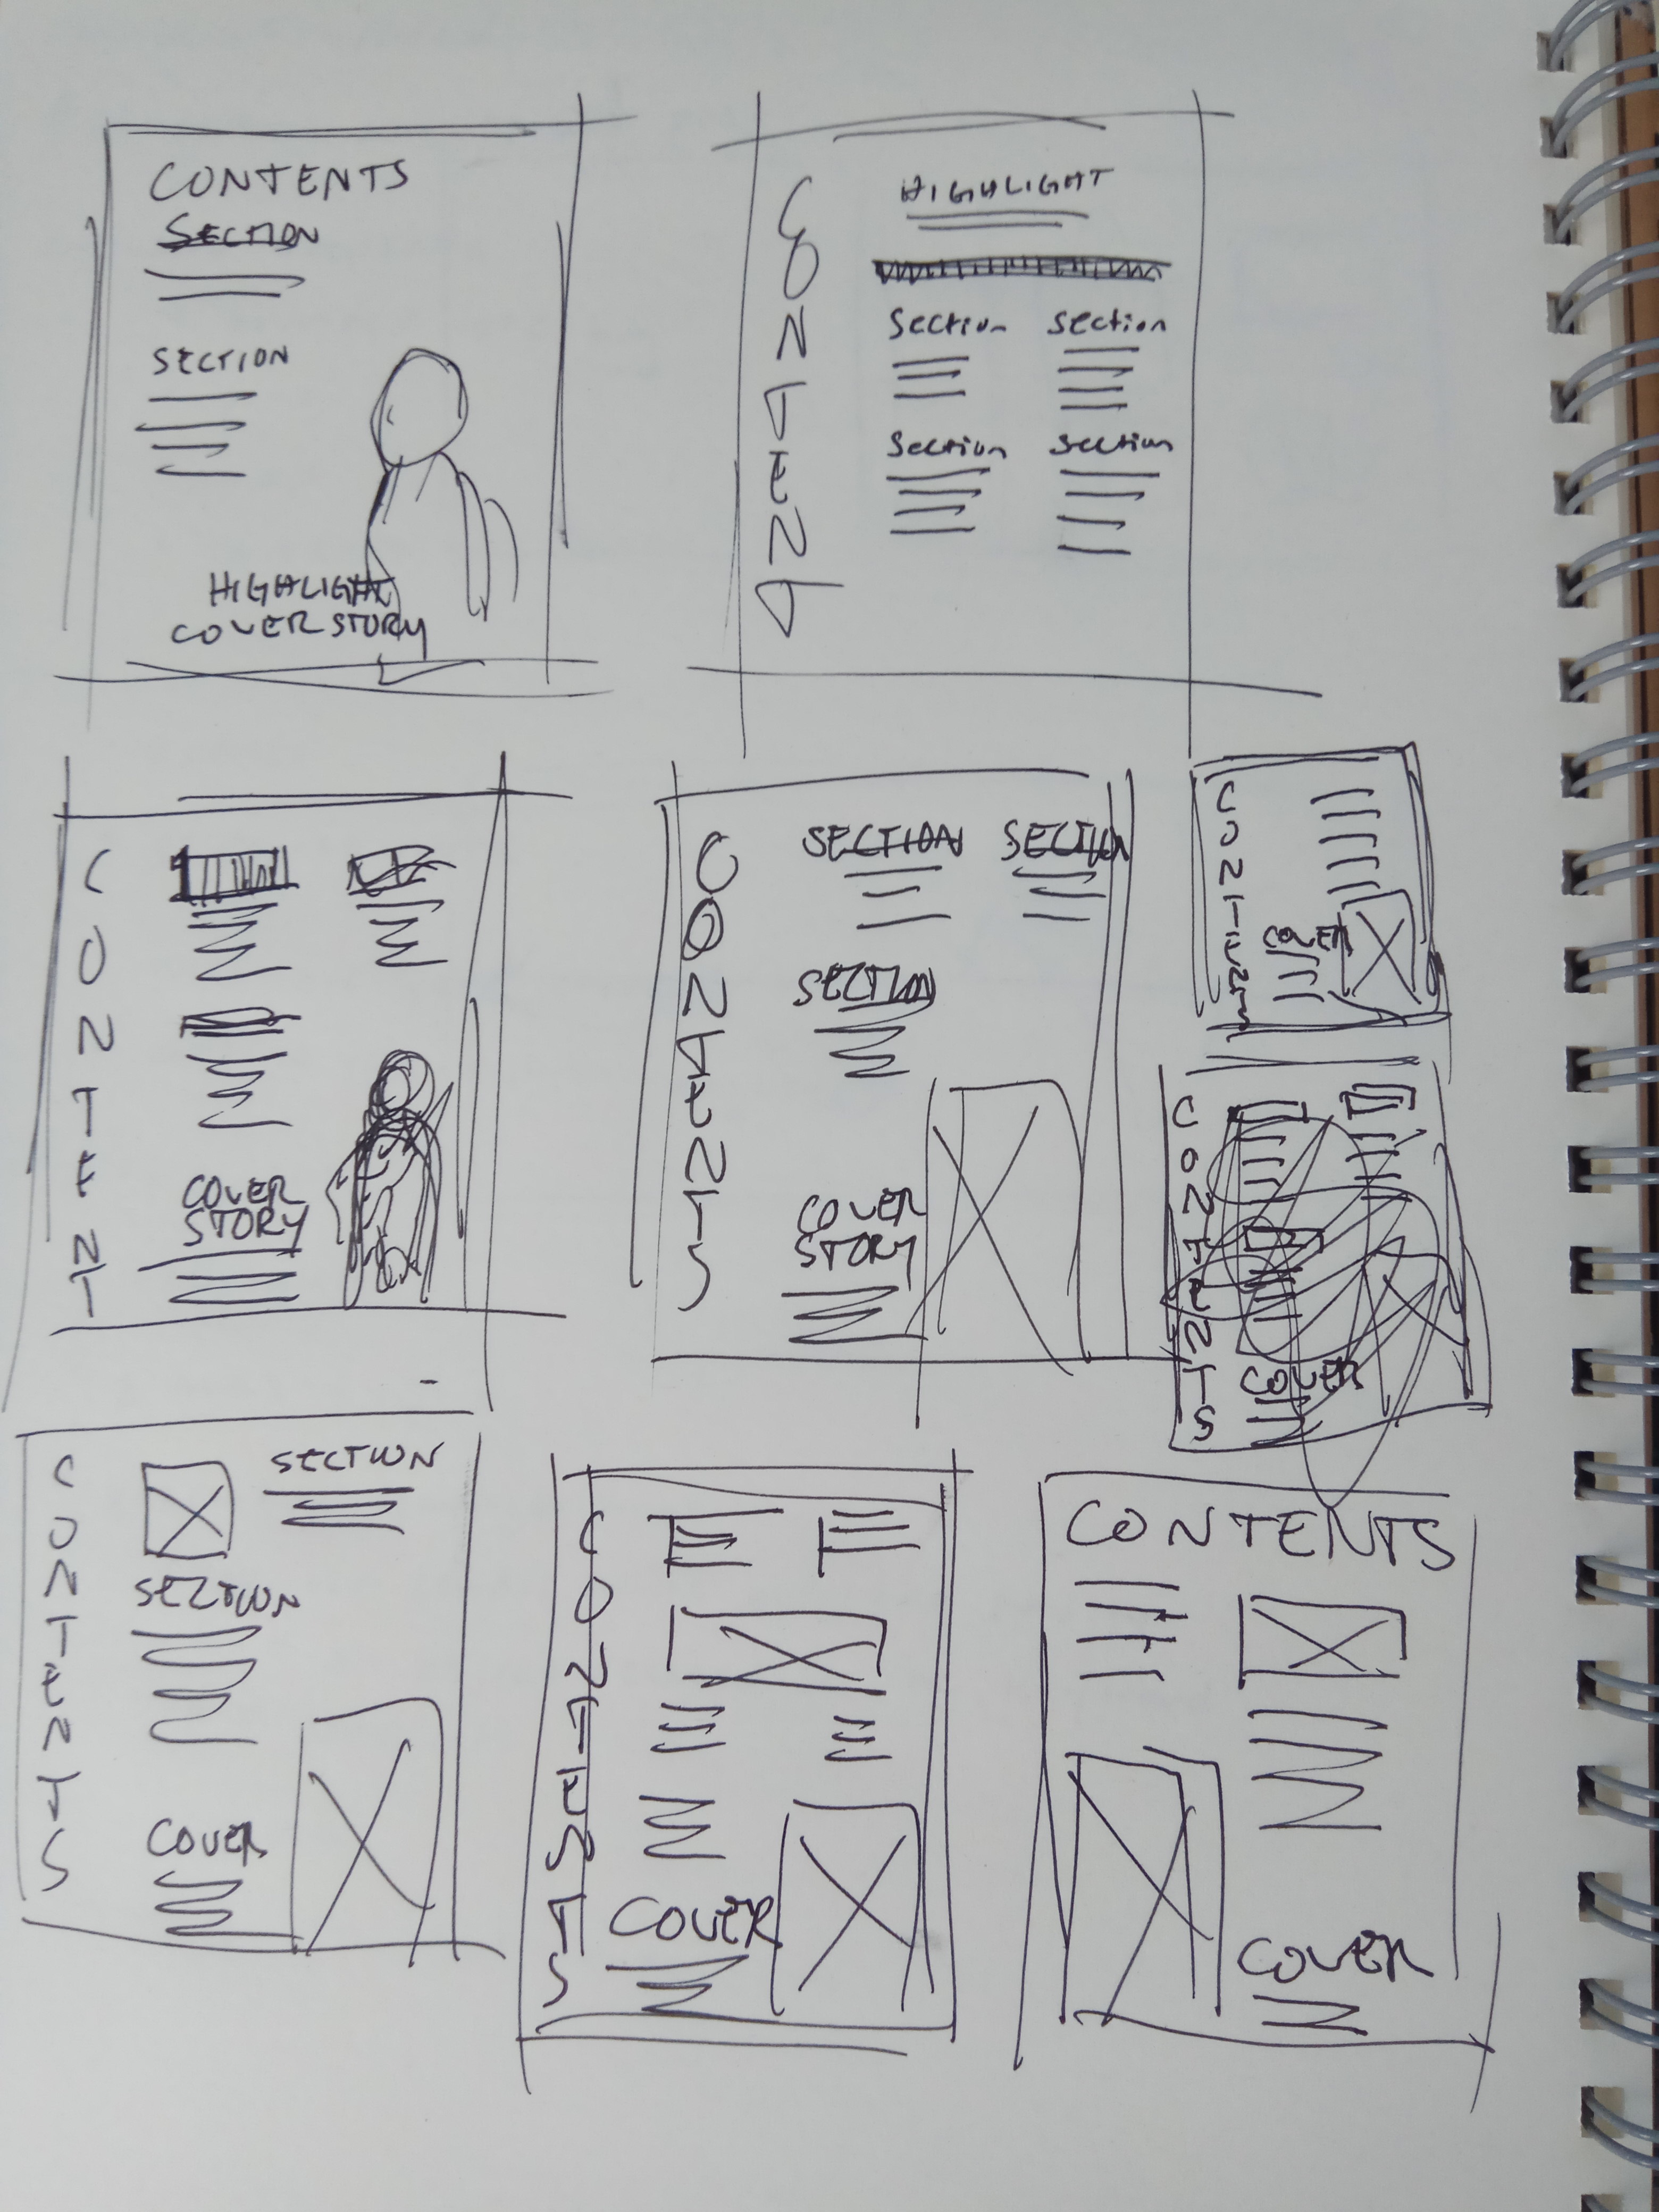 CONTENTS
SECTION
SECTION
HIGHLIGHT
COVER STORY
HIGHLIGHT
Section Section
Section Section
CONTENT
COVER
STORY
CONTENTS
SECTION SECTION
SECTION
COVER
STORY
COVER
CONTENTS
COVER
CONTENTS
SECTION
SECTION
COVER
CONTENTS
COVER
CONTENTS
COVER